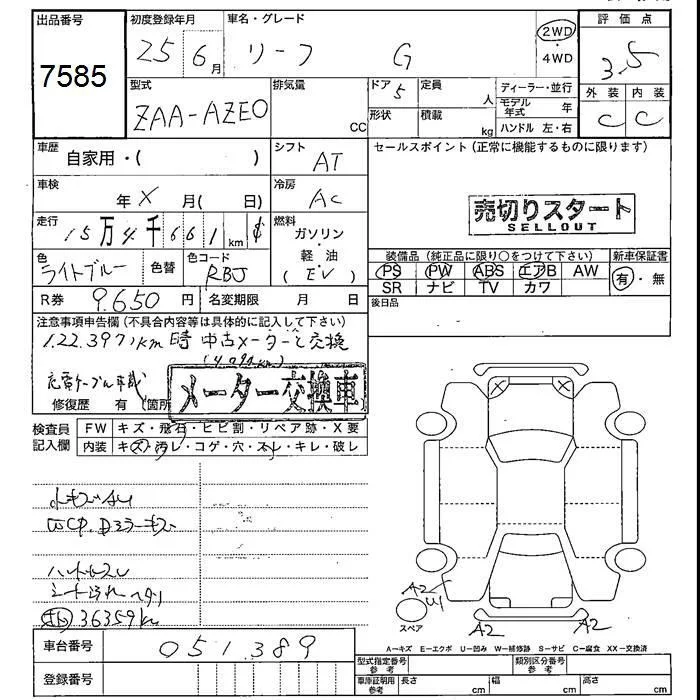 出品番号 初度登録年月 車名・グレード 評価点
7585 25 6月 リーフ G 2WD・4WD 3.5
型式 排気量 ドア 定員 ディーラー・並行 外装 内装
ZAA-AZE0 CC 5 人 モデル年式 年 C C
形状 積載 kg ハンドル 左・右
車歴 自家用・( ) シフト AT セールスポイント(正常に機能するものに限ります)
車検 年 X 月( 日) 冷房 AC
売切りスタート
SELLOUT
走行 15万4千661km 燃料 ガソリン・軽油
(EV)
色 ライトブルー 色替 色コード RBJ
装備品(純正品に限り○をつけて下さい) 新車保証書
PS PW ABS エアB AW 有・無
SR ナビ TV カワ
R券 9.650円 名変期限 月 日 後日品
注意事項申告欄(不具合内容等は具体的に記入して下さい)
122.397km時 中古メーターと交換
充電ケーブル車載
メーター交換車
修復歴 有(箇所
検査員記入欄 FW キズ・飛石・ヒビ割・リペア跡・X要
内装 キズ・汚レ・コゲ・穴・スレ・キレ・破レ
小キズ
D ミラーキズ
ハンドルスレ
シート汚れ ヘタリ
36359km
A2
U1
スペア A2 A2
A-キズ E-エクボ U-凹み W-補修跡 S-サビ C-腐食 XX-交換済
車台番号 051389
型式指定番号 参考 類別区分番号 参考
登録番号 車庫証明用 参考 長さ cm 幅 cm 高さ cm